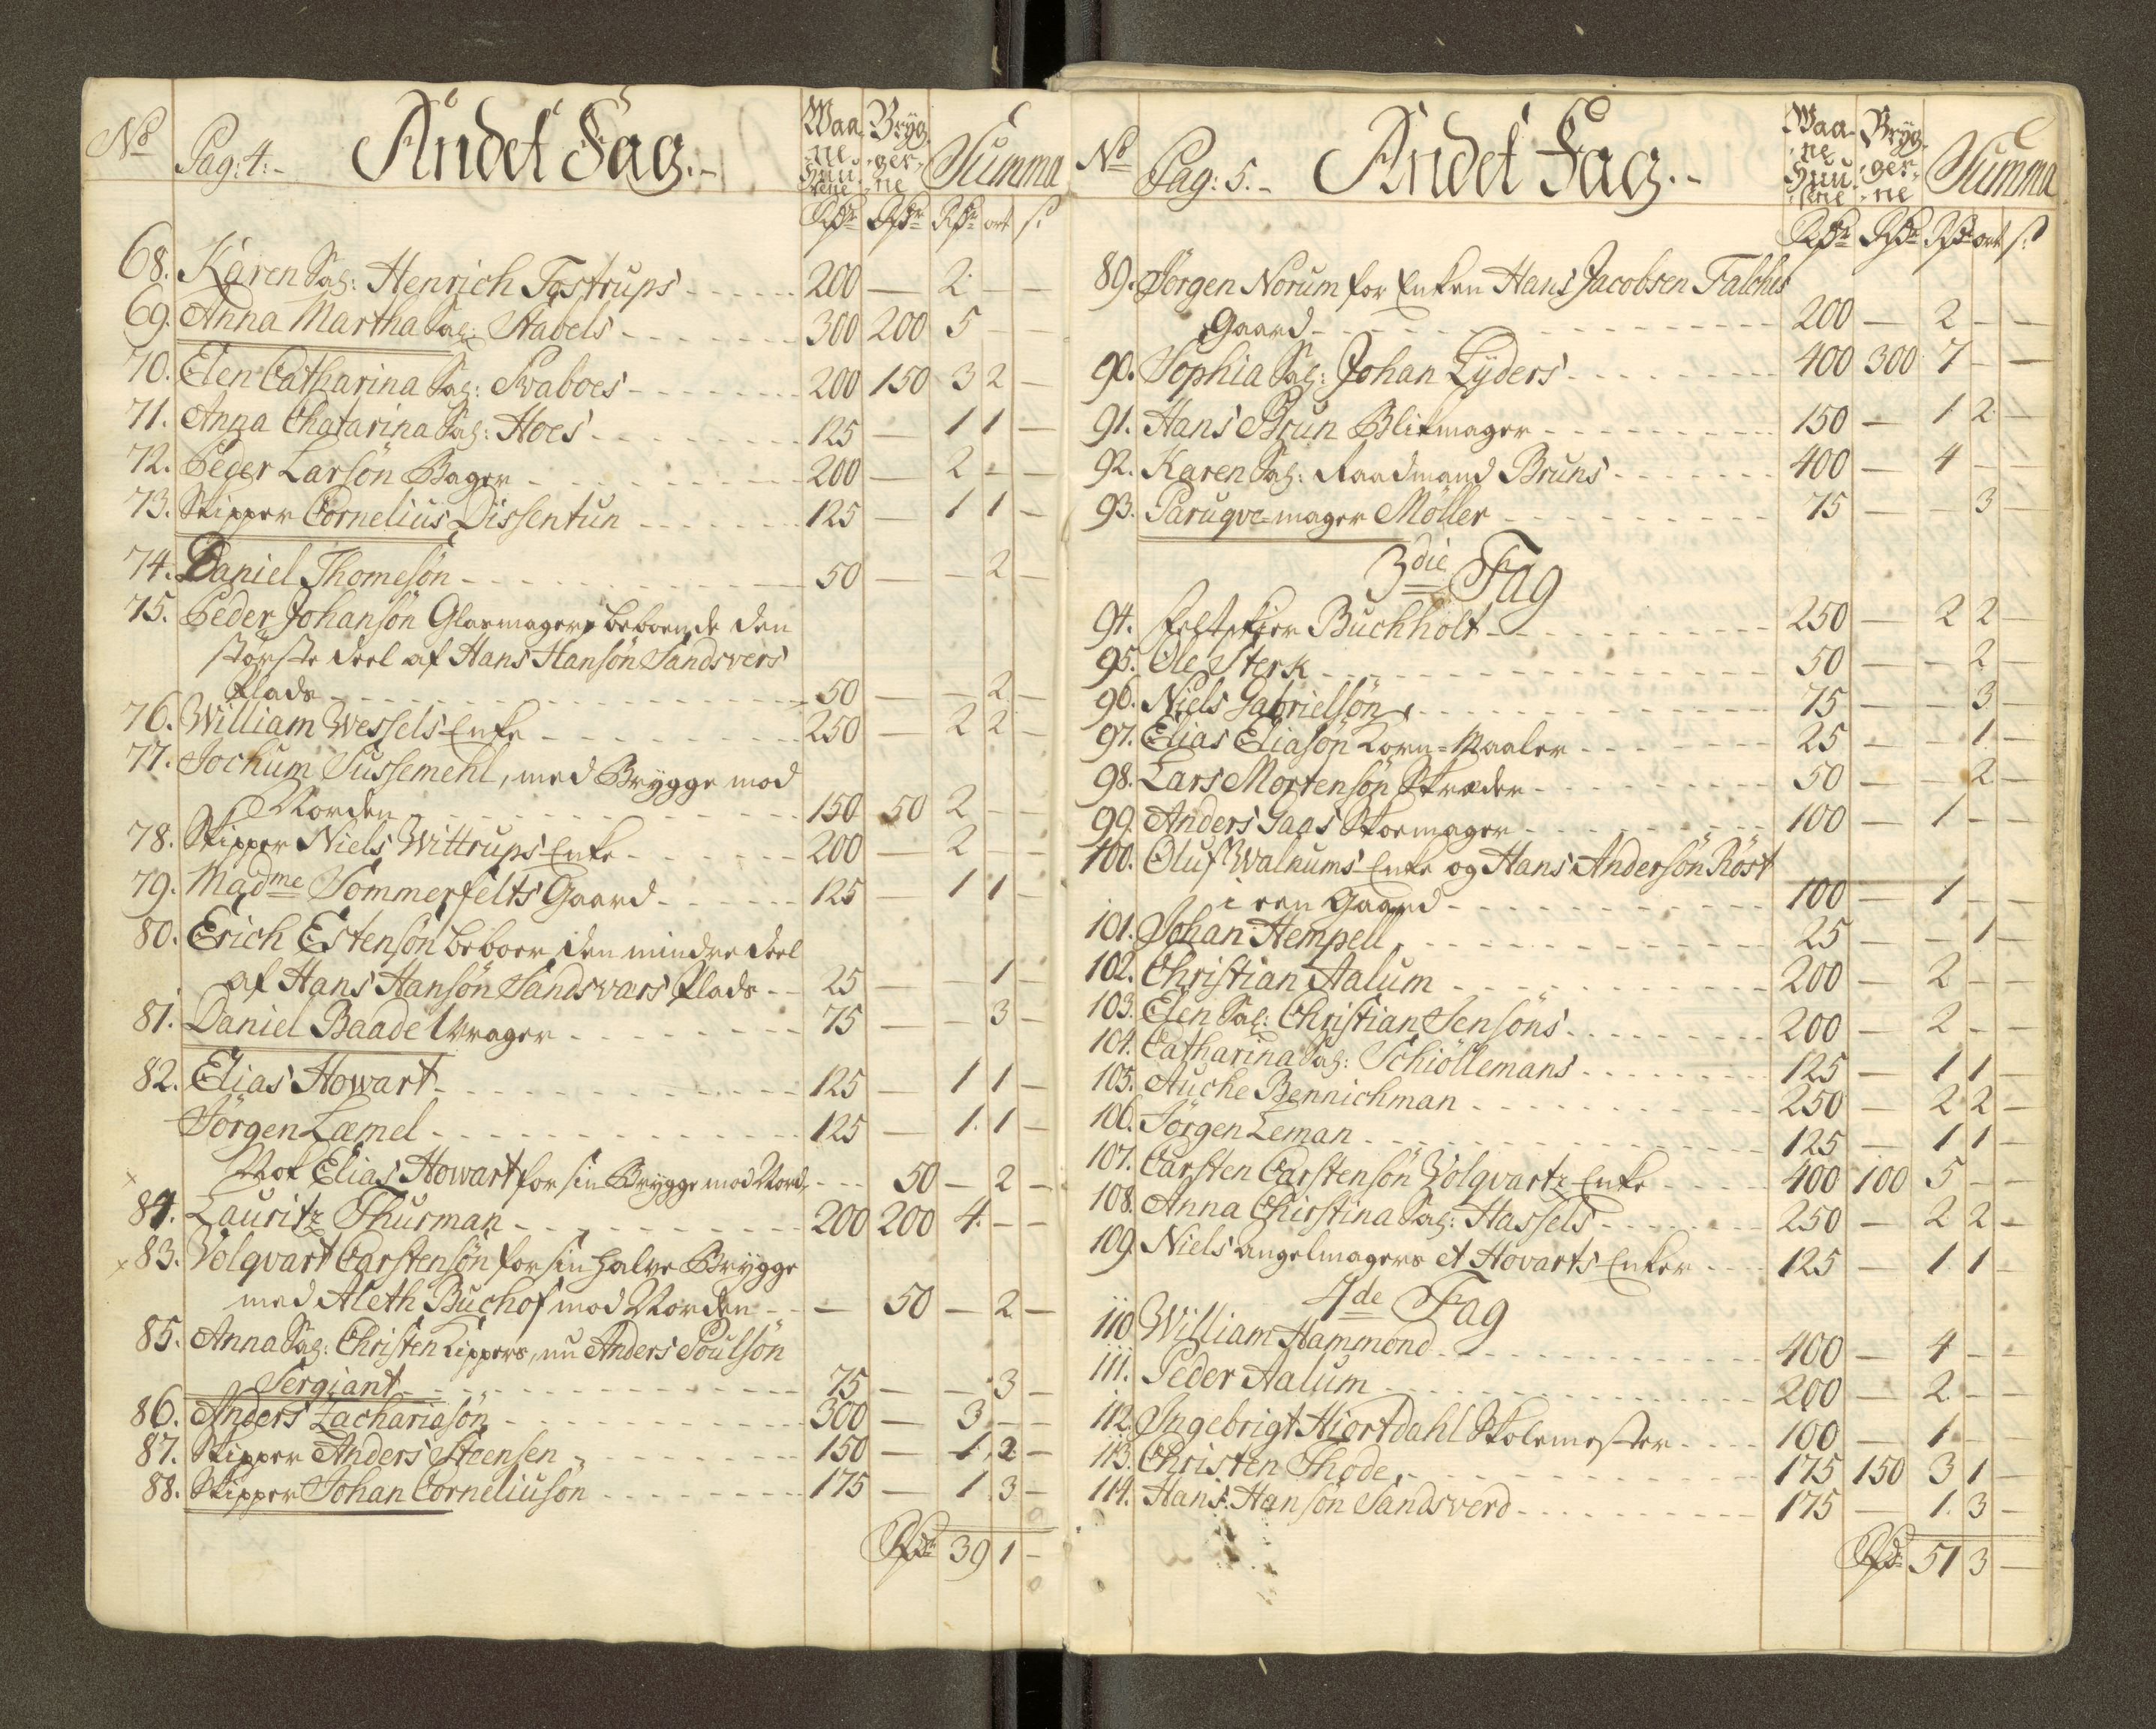 No Pag: 4:- Andet Fag.- Waa- Bryg Summa
ne- ger-
Huu- ne
sene
Rdr Rdr Rdr ort s:
68. Karen Sal: Henrich Tostrups 200 — 2 — —
69. Anna Martha Sal: Stabels 300 200 5 — —
70. Elen Catharina Sal: Svaboes 200 150 3 2 —
71. Anna Chatarina Sal: Hoes 125 — 1 1 —
72. Peder Larsön Bager 200 — 2 — —
73. Skipper Cornelius Dissentun 125 — 1 1 —
74. Daniel Thomesön 50 — — 2 —
75. Peder Johansön Glasmager beboende den
störste deel af Hans Hansön Sandsvers
Plads 50 — — 2 —
76. William Wessels Enke 250 — 2 2 —
77. Jochum Sussemehl, med Brygge mod
Norden 150 50 2 — —
78. Skipper Niels Wittrups Enke 200 — 2 — —
79. Madme Sommerfelts Gaard 125 — 1 1 —
80. Erich Estensön beboer den mindre deel
af Hans Hansön Sandsvers Plads 25 — — 1 —
81. Daniel Baade Vrager 75 — — 3 —
82. Elias Howart 125 — 1 1 —
Jörgen Læmel 125 — 1 1 —
Not Elias Howart for sin Brygge mod Nord 50 — 2 —
84. Lauritz Thurman 200 200 4 — —
83. Volqvart Carstensön for sin halve Brygge
med Aleth Buchof mod Norden — 50 — 2 —
85. Anna Sal: Christen Kippers, nu Anders Poulsön
Sergiant 75 — — 3 —
86. Anders Zachariasön 300 — 3 — —
87. Skipper Anders Steensen 150 — 1 2 —
88. Skipper Johan Corneliusön 175 — 1 3 —
Rdr 39 1 —
No Pag: 5.- Andet Fag.- Waa- Bryg- Summa
ne ger-
Huu- ne
sene
Rdr Rdr Rdr ort s:
89. Jörgen Norum for Enken Hans Jacobsen Falches
Gaard 200 — 2 — —
90. Sophia Sal: Johan Lyders 400 300 7 — —
91. Hans Brun Blikmager 150 — 1 2 —
92. Karen Sal: Raadmand Bruns 400 — 4 — —
93. Paruqve-mager Möller 75 — — 3 —
3die Fag
94. Feltskier Buchholt 250 — 2 2 —
95. Ole Sterk 50 — — 2 —
96. Niels Gabrielsön 75 — — 3 —
97. Elias Eliasön Korn-Maaler 25 — — 1 —
98. Lars Mortensön Skræder 50 — — 2 —
99. Anders Gaas Skoemager 100 — 1 — —
100. Oluf Walnums Enke og Hans Andersön Röst
i een Gaard 100 — 1 — —
101. Johan Hempell 25 — — 1 —
102. Christian Aalum 200 — 2 — —
103. Elen Sal: Christian Jensöns 200 — 2 — —
104. Catharina Sal: Schiöllemans 125 — 1 1 —
105. Auche Bennichman 250 — 2 2 —
106. Jörgen Leman 125 — 1 1 —
107. Carsten Carstensön Volqvartz Enke 400 100 5 — —
108. Anna Chirstina Sal: Hassels 250 — 2 2 —
109. Niels Angelmagers et Hovarts Enker 125 — 1 1 —
4de Fag
110. William Hammond 400 — 4 — —
111. Peder Aalum 200 — 2 — —
112. Ingebrigt Hiortdahl Skolemester 100 — 1 — —
113. Christen Thode 175 150 3 1 —
114. Hans Hansön Sandsverd 175 — 1 3 —
Rdr 51 3 —